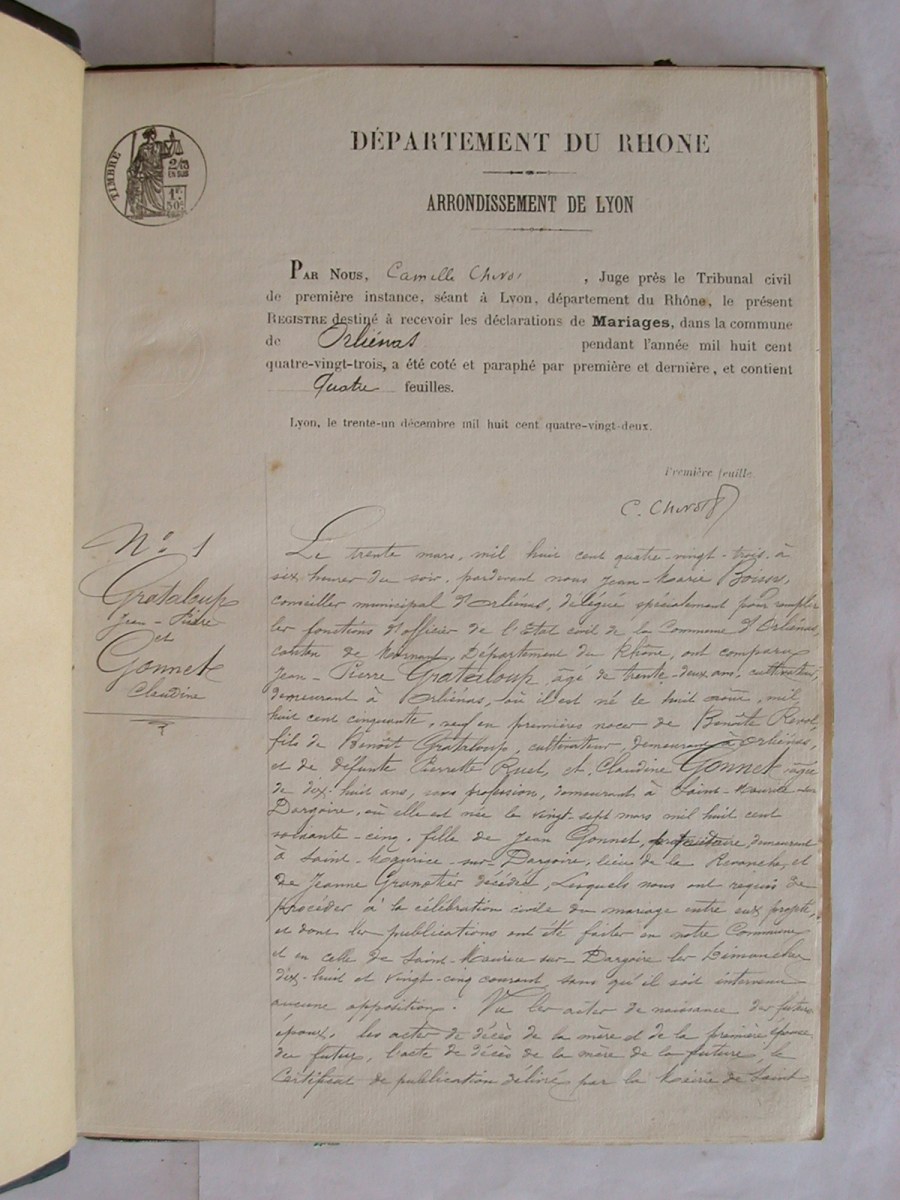 TIMBRE
DÉPARTEMENT DU RHONE
ARRONDISSEMENT DE LYON
PAR NOUS, Camille , Juge près le Tribunal civil
de première instance, séant à Lyon, département du Rhône, le présent
REGISTRE destiné à recevoir les déclarations de Mariages, dans la commune
de Orliénas pendant l'année mil huit cent
quatre-vingt-trois, a été coté et paraphé par première et dernière, et contient
Quatre feuilles.
Lyon, le trente-un décembre mil huit cent quatre-vingt-deux.
Première feuille.
C.
No 1
Grataloup
Jean-Pierre
et
Gonnet
Claudine
Le trente mars, mil huit cent quatre-vingt-trois, à
six heures du soir, pardevant nous Jean-Marie
conseiller municipal d'Orliénas, délégué spécialement pour remplir
les fonctions d'officier de l'Etat civil de la Commune d'Orliénas,
canton de Mornant, Département du Rhône, ont comparu
Jean-Pierre Grataloup, âgé de trente-deux ans, cultivateur,
demeurant à Orliénas, où il est né le huit août, mil
huit cent cinquante, veuf en premières noces de Benoîte Revol,
fils de Benoît Grataloup, cultivateur, demeurant à Orliénas,
et de défunte Pierrette et Claudine Gonnet âgée
de dix-huit ans, sans profession, demeurant à Saint-Maurice-sur-
Dargoire, où elle est née le vingt sept mars mil huit cent
soixante-cinq, fille de Jean Gonnet, propriétaire, demeurant
à Saint-Maurice-sur-Dargoire, lieu de la et
de Jeanne décédée, Lesquels nous ont requis de
procéder à la célébration civile du mariage entre eux projeté,
et dont les publications ont été faites en notre Commune
et en celle de Saint-Maurice-sur-Dargoire les Dimanches
dix-huit et vingt-cinq courant, sans qu'il soit intervenu
aucune opposition. Vu les actes de naissance des futurs
époux, les actes de décès de la mère et de la première épouse
du futur, l'acte de décès de la mère de la future, le
certificat de publication délivré par la Mairie de Saint